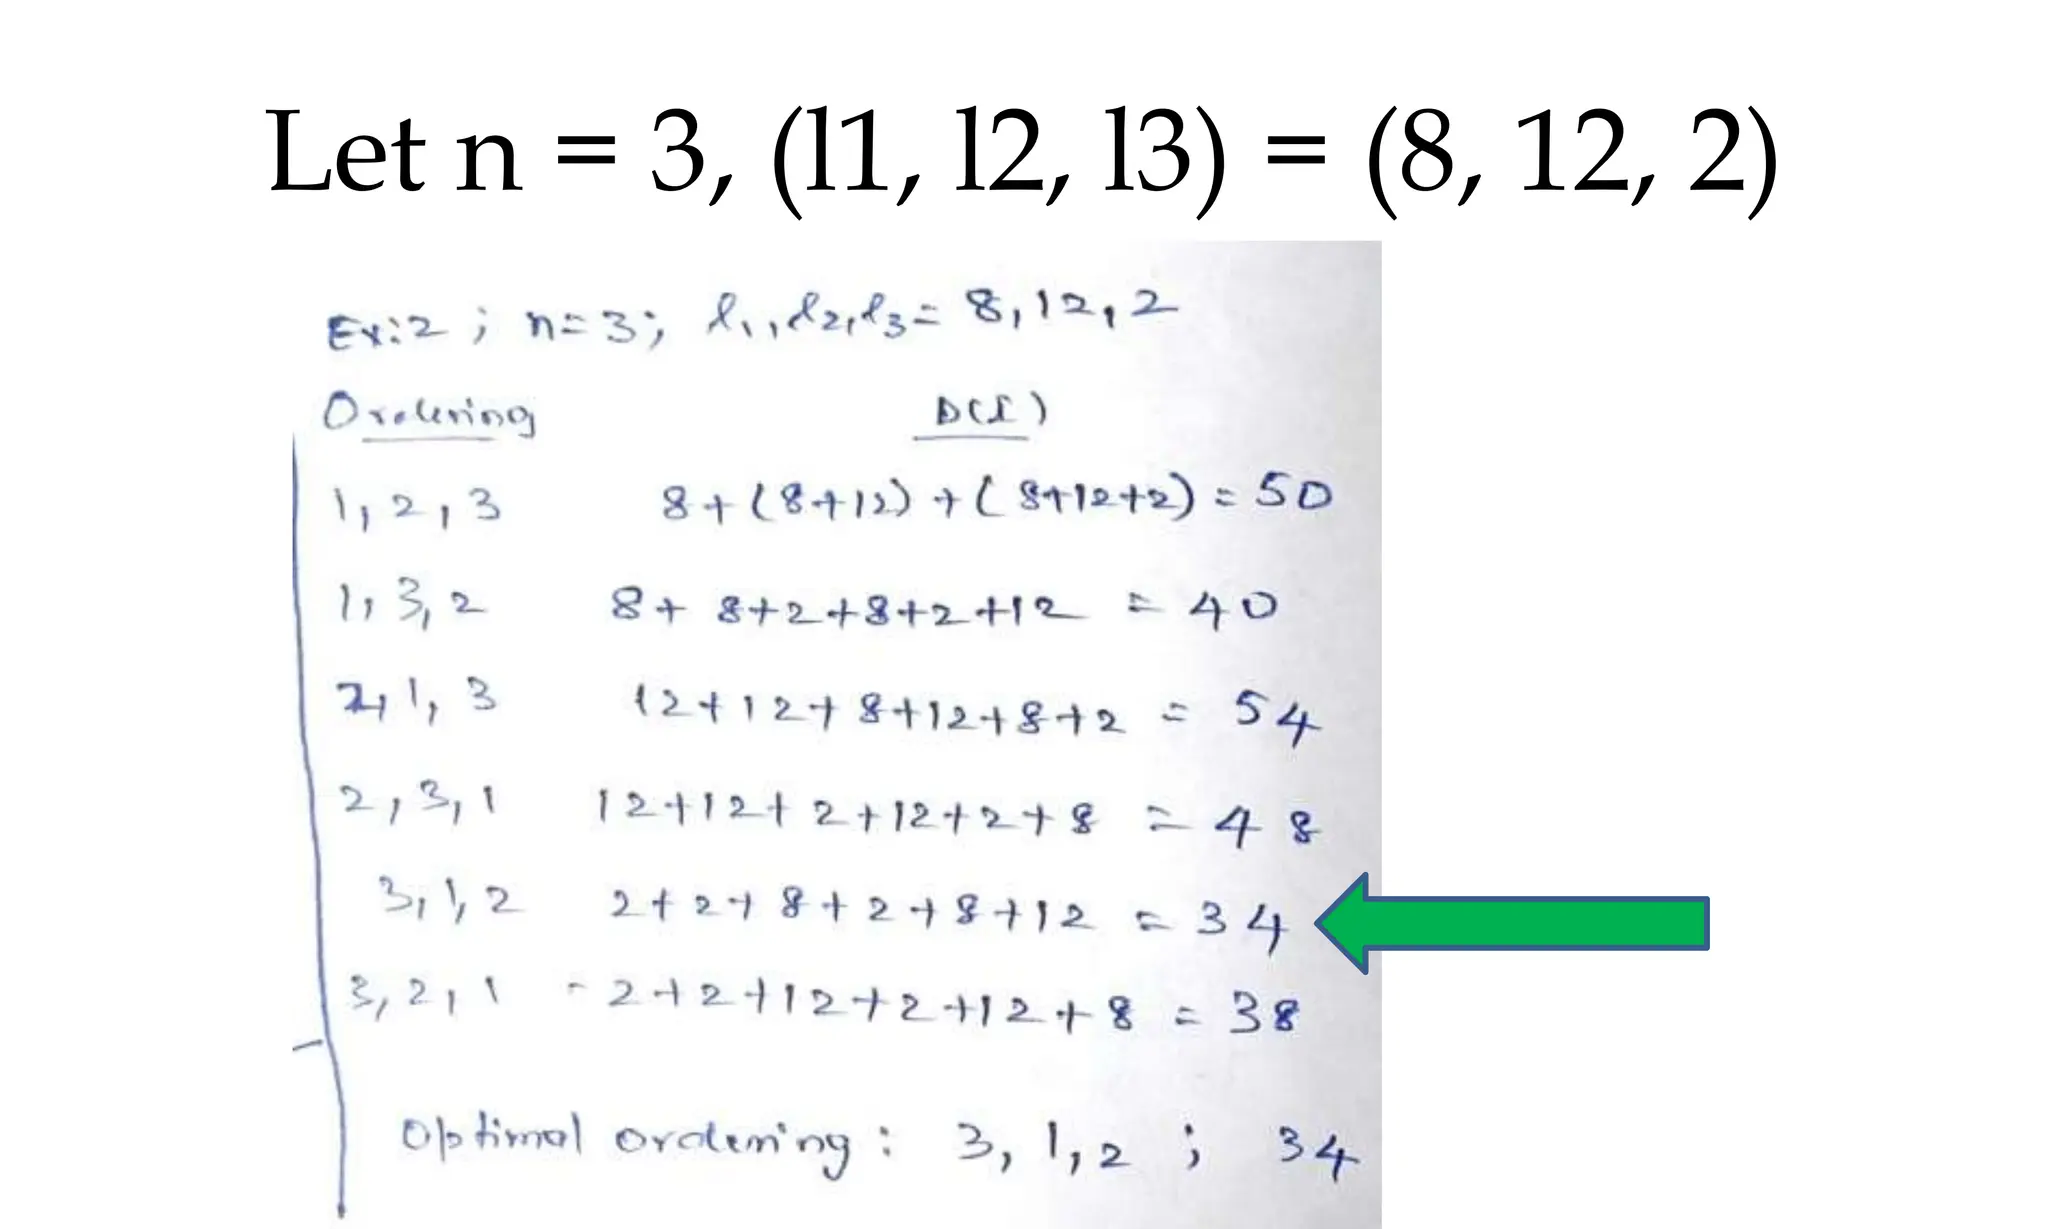 Let n = 3, (l1, l2, l3) = (8, 12, 2)
Ex:2 ; n=3; l1, l2, l3 = 8, 12, 2
Ordering D(I)
1, 2, 3 8+(8+12)+(8+12+2) = 50
1, 3, 2 8+ 8+2+8+2+12 = 40
2, 1, 3 12+12+8+12+8+2 = 54
2, 3, 1 12+12+2+12+2+8 = 48
3, 1, 2 2+2+8+2+8+12 = 34
3, 2, 1 - 2+2+12+2+12+8 = 38
Optimal ordering : 3, 1, 2 ; 34